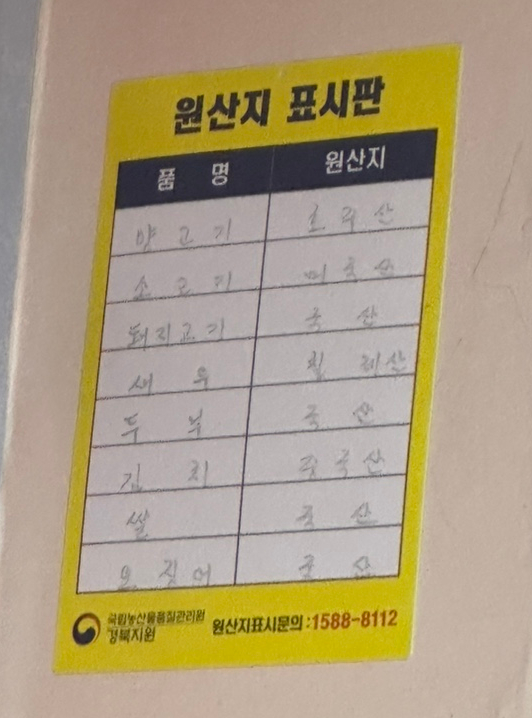 원산지 표시판
품 명 원산지
양 고 기 호 주 산
소 고 기 미 국 산
돼지고기 국 산
새 우 칠 레산
두 부 국 산
김 치 중 국 산
쌀 국 산
오 징 어 국 산
국립농산물품질관리원
경북지원
원산지표시문의:1588-8112